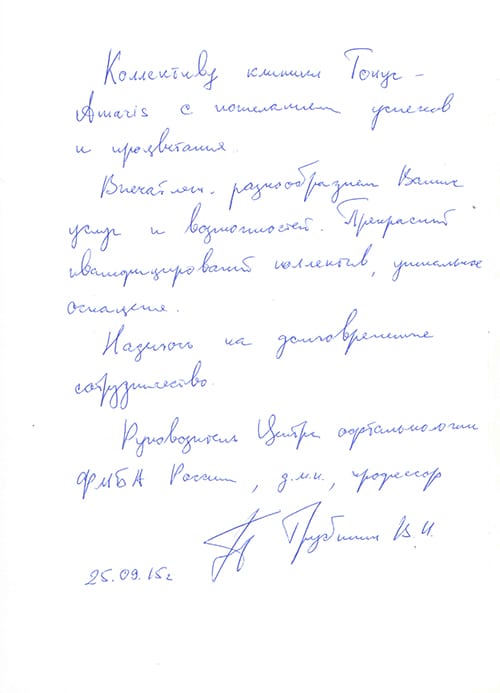 Коллективу клиники Тонус -
Amaris с пожеланием успехов
и процветания.
Впечатлен разнообразием Ваших
услуг и возможностей. Прекрасный
квалифицированный коллектив, уникальное
оснащение.
Надеюсь на долговременное
сотрудничество.
Руководитель Центра офтальмологии
ФМБА России, д.м.н., профессор
Трубилин В.Н.
25.09.15г